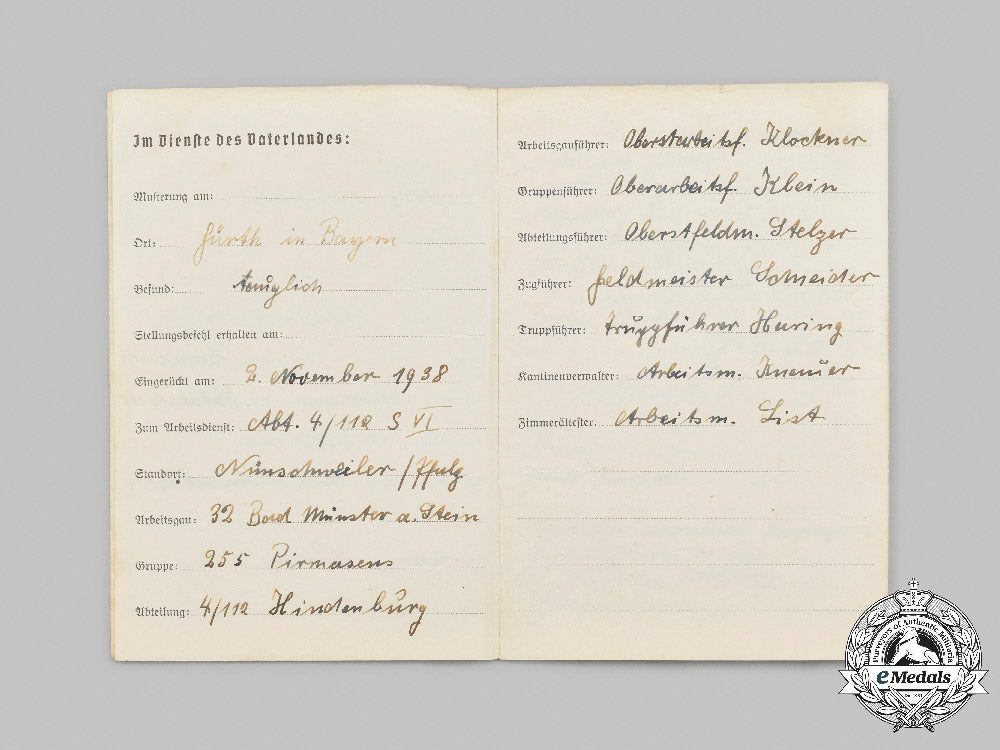 Im Dienste des Vaterlandes:
Musterung am:
Ort: Fürth in Bayern
Befund: tauglich
Stellungsbefehl erhalten am:
Eingerückt am: 2. November 1938
Zum Arbeitsdienst: Abt. 4/112 S VI
Standort: Nünschweiler / Pfalz
Arbeitsgau: 32 Bad Münster a. Stein
Gruppe: 255 Pirmasens
Abteilung: 4/112 Hindenburg
Arbeitsgauführer: Oberstarbeitsf. Klockner
Gruppenführer: Oberarbeitsf. Klein
Abteilungsführer: Oberstfeldm. Stelzer
Zugführer: Feldmeister Schneider
Truppführer: Truppführer Haring
Kantinenverwalter: Arbeitsm. Knauer
Zimmerältester: Arbeitsm. List
Purveyors of Authentic Militaria
eMedals